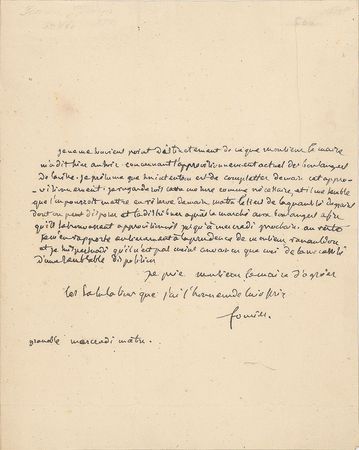 je ne me souviens point distinctement de ce que monsieur le maire
m'a dit hier au soir concernant l'approvisionnement actuel des boulangers
de la ville. je présume que son intention est de completter demain cet appro-
-visionnement. je regarderois cette mesure comme nécessaire, et il me semble
que l'on pourroit mettre en réserve demain matin le tiers de la quantité de grains
dont on peut disposer et la distribuer après le marché aux boulangers afin
qu'ils fussent approvisionnés jusqu'à mercredi prochain. au reste
je m'en rapporte entierement à la prudence de monsieur renauldon
et je suis persuadé qu'il n'est pas moins convaincu que moi de la nécessité
d'une semblable disposition
je prie monsieur le maire d'agréer
les salutations que j'ai l'honneur de lui offrir
fourier.
grenoble mercredi matin.